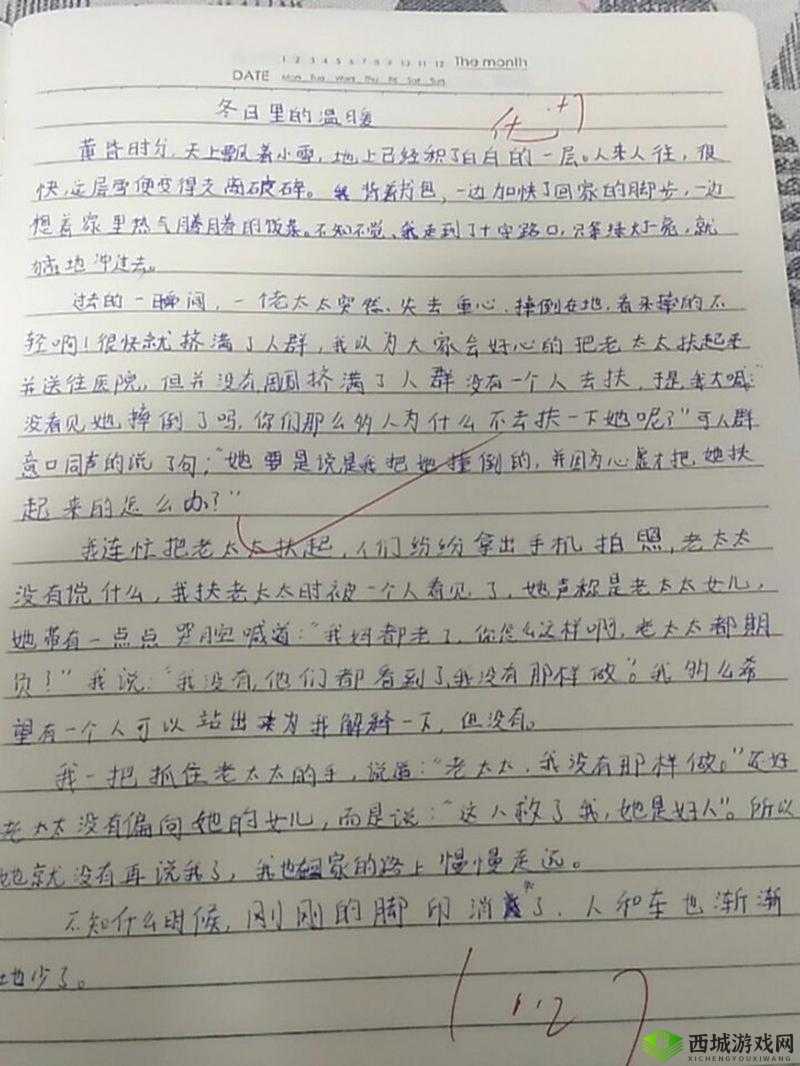 1 2 3 4 5 6 7 8 9 10 11 12 The month
DATE Mon Tue Wed Thu Fri Sat Sun
冬日里的温暖
黄昏时分,天上飘着小雪,地上已经积了白白的一层。人来人往,很
快,这层雪便变得支离破碎。我背着书包,一边加快了回家的脚步,一边
想着家里热气腾腾的饭菜。不知不觉、我走到了十字路口,只等绿灯一亮,就
地冲过去。
过去的一瞬间,一个老太太突然、失去重心,摔倒在地,看来摔的不
轻啊!很快就挤满了人群,我以为大家会好心的把老太太扶起来
并送往医院,但并没有,挤满了人群没有一个人去扶,于是我大喊:
没看见她摔倒了吗,你们那么多人为什么不去扶一下她呢?”可人群
意口同声的说了句;“她要是说是我把她撞倒的,并因为心虚才把她扶
起来的怎么办?”
我连忙把老太太扶起,人们纷纷拿出手机拍照,老太太
没有说什么,我扶老太太时被一个人看见了,她声称是老太太女儿,
她带有一点点哭腔喊道:“我妈都老了,你怎么这样啊,老太太都期
负?”我说:“我没有,他们都看到了,我没有那样做”。我多么希
望有一个人可以站出来为我解释一下,但没有。
我一把抓住老太太的手,说道:“老太太,我没有那样做。”还好
老太太没有偏向她的女儿,而是说:“这人救了我,她是好人”。所以
她就没有再说我了,我也回家的路上慢慢走远。
不知什么时候,刚刚的脚印消失了,人和车也渐渐
地少了。
西城游戏网
XICHENGYOUXIWANG